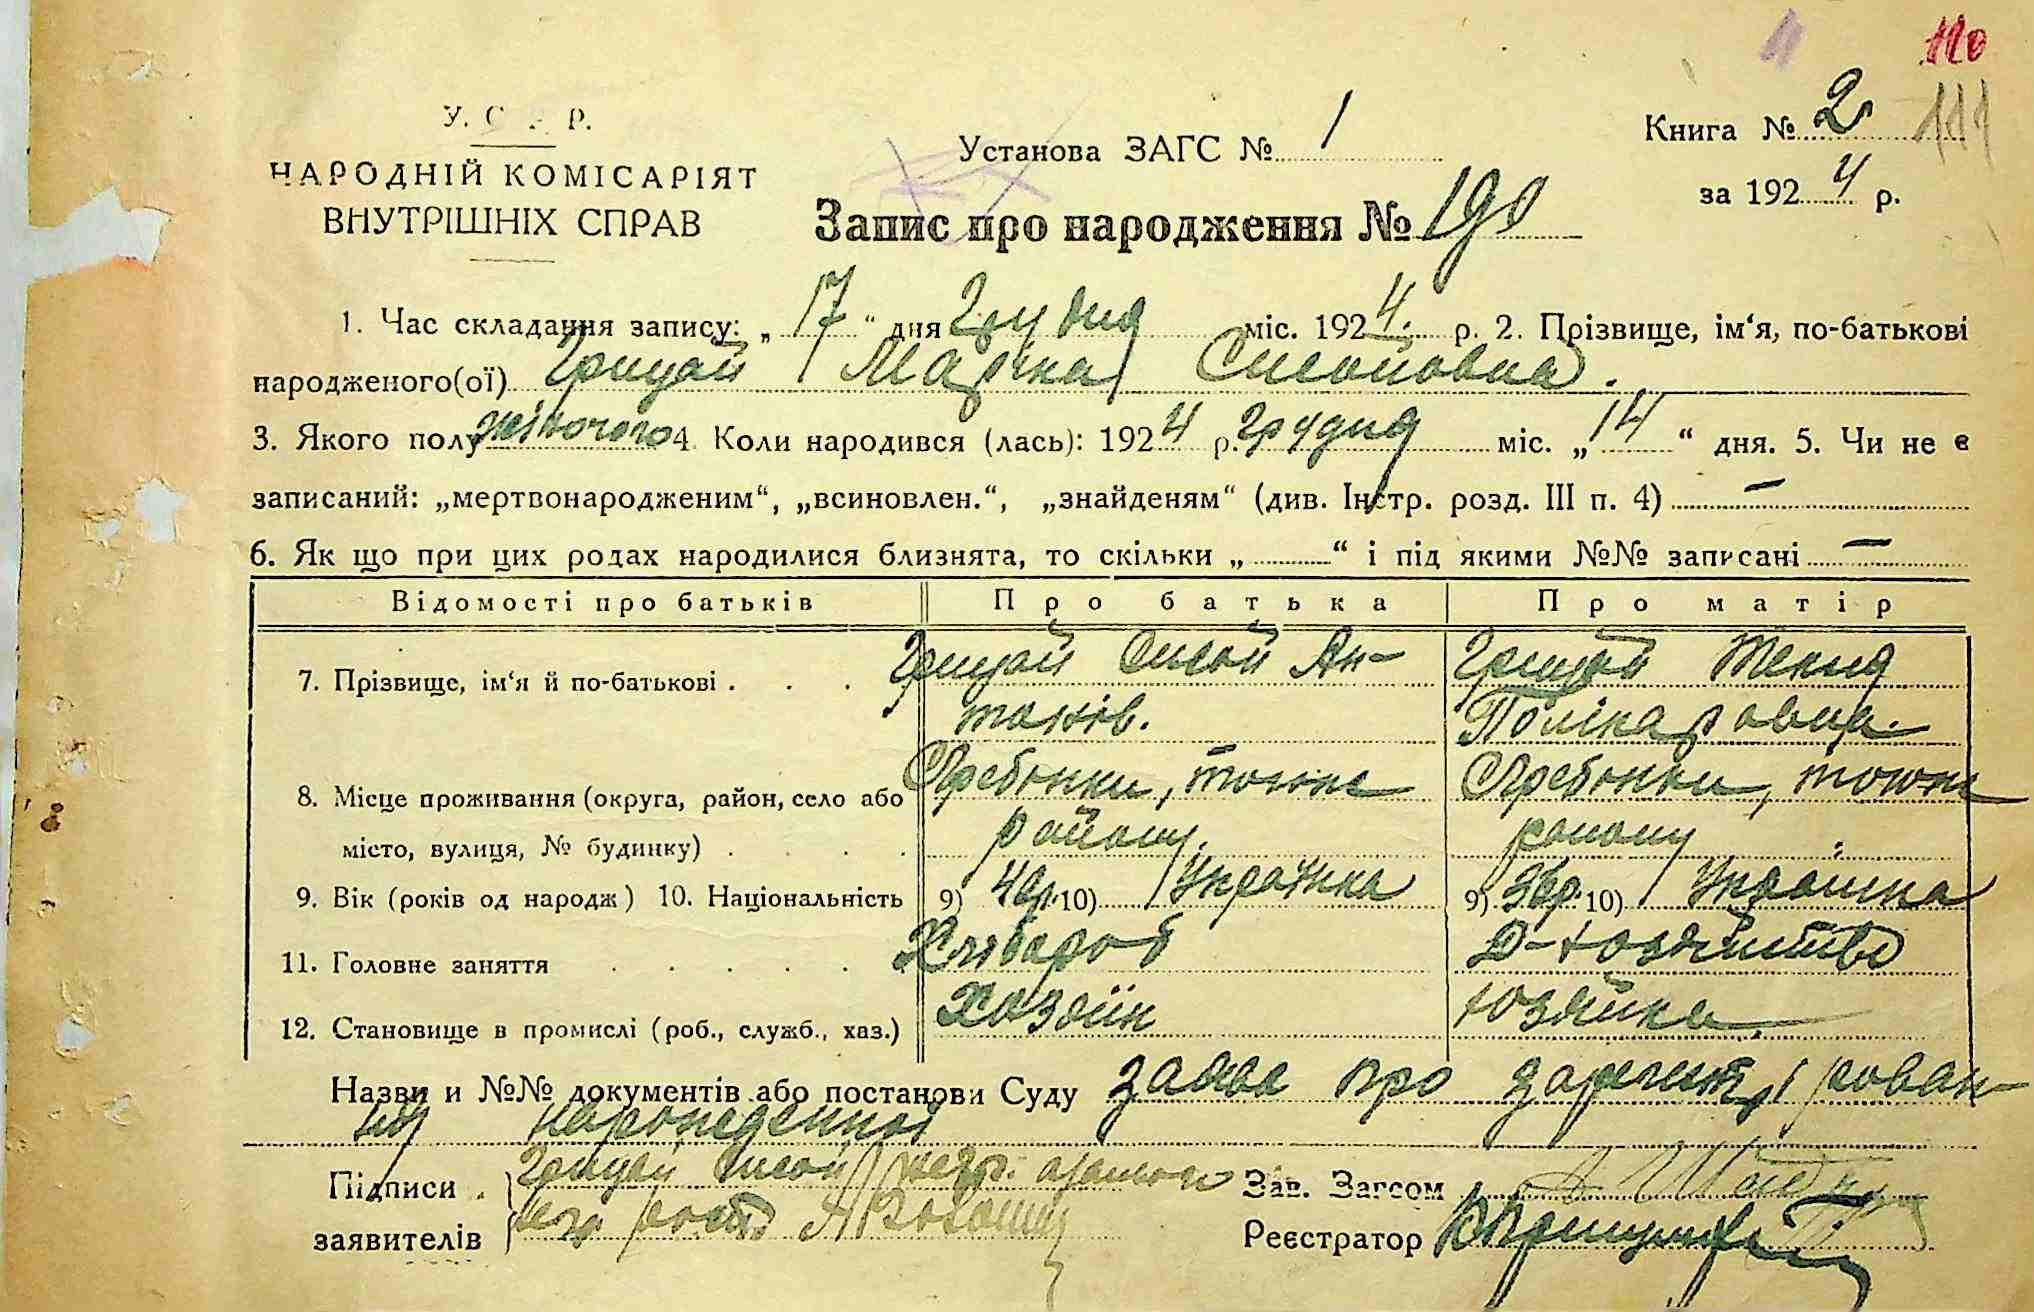 110
111
У. С. Р. Р.
НАРОДНІЙ КОМІСАРІЯТ
ВНУТРІШНІХ СПРАВ
Установа ЗАГС № 1
Книга № 2
за 1924 р.
Запис про народження № 190
1. Час складання запису: „ 17 “ дня Грудня міс. 1924. р. 2. Прізвище, ім‘я, по-батькові
народженого(ої) Грицай Марина Сисоїовна.
3. Якого полу жіночого 4 Коли народився (лась): 1924 р. Грудня міс. „ 14 “ дня. 5. Чи не є
записаний: „мертвонародженим“, „всиновлен.“, „знайденям“ (див. Інстр. розд. III п. 4) —
6. Як що при цих родах народилися близнята, то скільки „ “ і під якими №№ записані —
Відомості про батьків Про батька Про матір
7. Прізвище, ім‘я й по-батькові . . . Грицай Сисой Ан- Грицай Текля
тонів. Полікаровна.
8. Місце проживання (округа, район, село або Гребінки, тоже Гребінки, тоже
місто, вулиця, № будинку) . . . . району. району
9. Вік (років од народж) 10. Національність 9) 10) Українка 9) 10) Українка
11. Головне заняття . . . . . Хлібороб Д-хозяйство
12. Становище в промислі (роб., служб., хаз.) Хозяїн хозяйка
Назви и №№ документів або постанови Суду заява про зарегистрірован-
ня нарожденної
Підписи . Грицай Сисой
заявителів
Зав. Загсом
Реєстратор